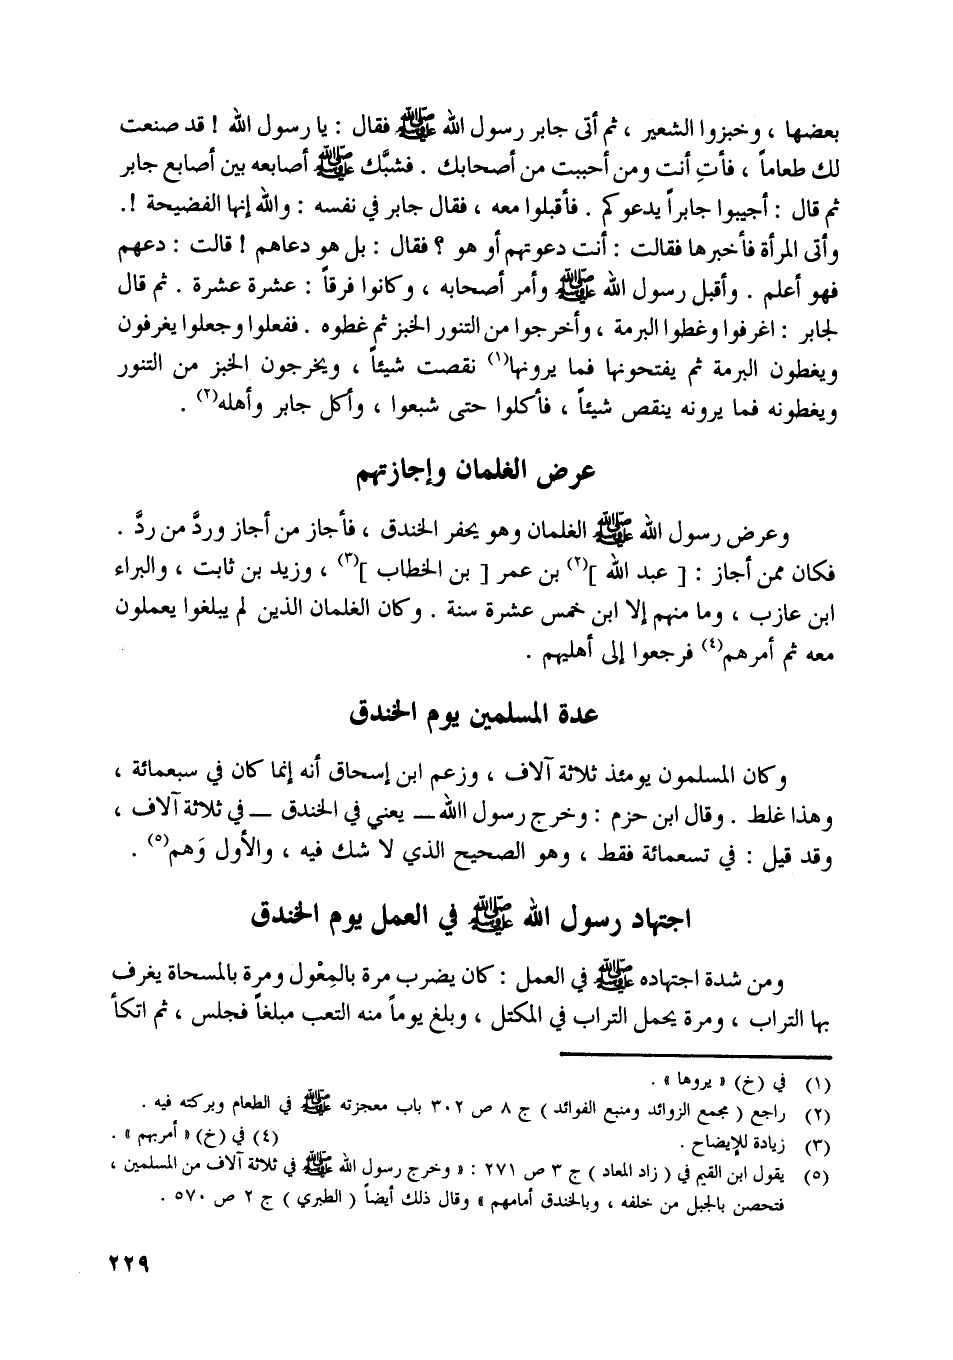 بعضها ، وخبزوا الشعير ، ثم أتى جابر رسول الله ﷺ فقال : يا رسول الله ! قد صنعت
لك طعاماً ، فأتِ أنت ومن أحببت من أصحابك . فشبَّك ﷺ أصابعه بين أصابع جابر
ثم قال : أجيبوا جابراً يدعوكم . فأقبلوا معه ، فقال جابر في نفسه : والله إنها الفضيحة !.
وأتى المرأة فأخبرها فقالت : أنت دعوتهم أو هو ؟ فقال : بل هو دعاهم ! قالت : دعهم
فهو أعلم . وأقبل رسول الله ﷺ وأمر أصحابه ، وكانوا فرقاً : عشرة عشرة . ثم قال
لجابر : اغرفوا وغطوا البرمة ، وأخرجوا من التنور الخبز ثم غطوه . ففعلوا وجعلوا يغرفون
ويغطون البرمة ثم يفتحونها فما يرونها(١) نقصت شيئاً ، ويخرجون الخبز من التنور
ويغطونه فما يرونه ينقص شيئاً ، فأكلوا حتى شبعوا ، وأكل جابر وأهله(٢) .
عرض الغلمان وإجازتهم
وعرض رسول الله ﷺ الغلمان وهو يحفر الخندق ، فأجاز من أجاز وردَّ من ردَّ .
فكان ممن أجاز : [ عبد الله ](٢) بن عمر [ بن الخطاب ](٣) ، وزيد بن ثابت ، والبراء
ابن عازب ، وما منهم إلا ابن خمس عشرة سنة . وكان الغلمان الذين لم يبلغوا يعملون
معه ثم أمرهم(٤) فرجعوا إلى أهليهم .
عدة المسلمين يوم الخندق
وكان المسلمون يومئذ ثلاثة آلاف ، وزعم ابن إسحاق أنه إنما كان في سبعمائة ،
وهذا غلط . وقال ابن حزم : وخرج رسول االله — يعني في الخندق — في ثلاثة آلاف ،
وقد قيل : في تسعمائة فقط ، وهو الصحيح الذي لا شك فيه ، والأول وَهم(٥) .
اجتهاد رسول الله ﷺ في العمل يوم الخندق
ومن شدة اجتهاده ﷺ في العمل : كان يضرب مرة بالمِعْول ومرة بالمسحاة يغرف
بها التراب ، ومرة يحمل التراب في المكتل ، وبلغ يوماً منه التعب مبلغاً فجلس ، ثم اتكأ
(١) في (خ) « يروها » .
(٢) راجع ( مجمع الزوائد ومنبع الفوائد ) ج ٨ ص ٣٠٢ باب معجزته ﷺ في الطعام وبركته فيه .
(٣) زيادة للإيضاح . (٤) في (خ) « أمربهم » .
(٥) يقول ابن القيم في ( زاد المعاد ) ج ٣ ص ٢٧١ : « وخرج رسول الله ﷺ في ثلاثة آلاف من المسلمين ،
فتحصن بالجبل من خلفه ، وبالخندق أمامهم » وقال ذلك أيضاً ( الطبري ) ج ٢ ص ٥٧٠ .
٢٢٩